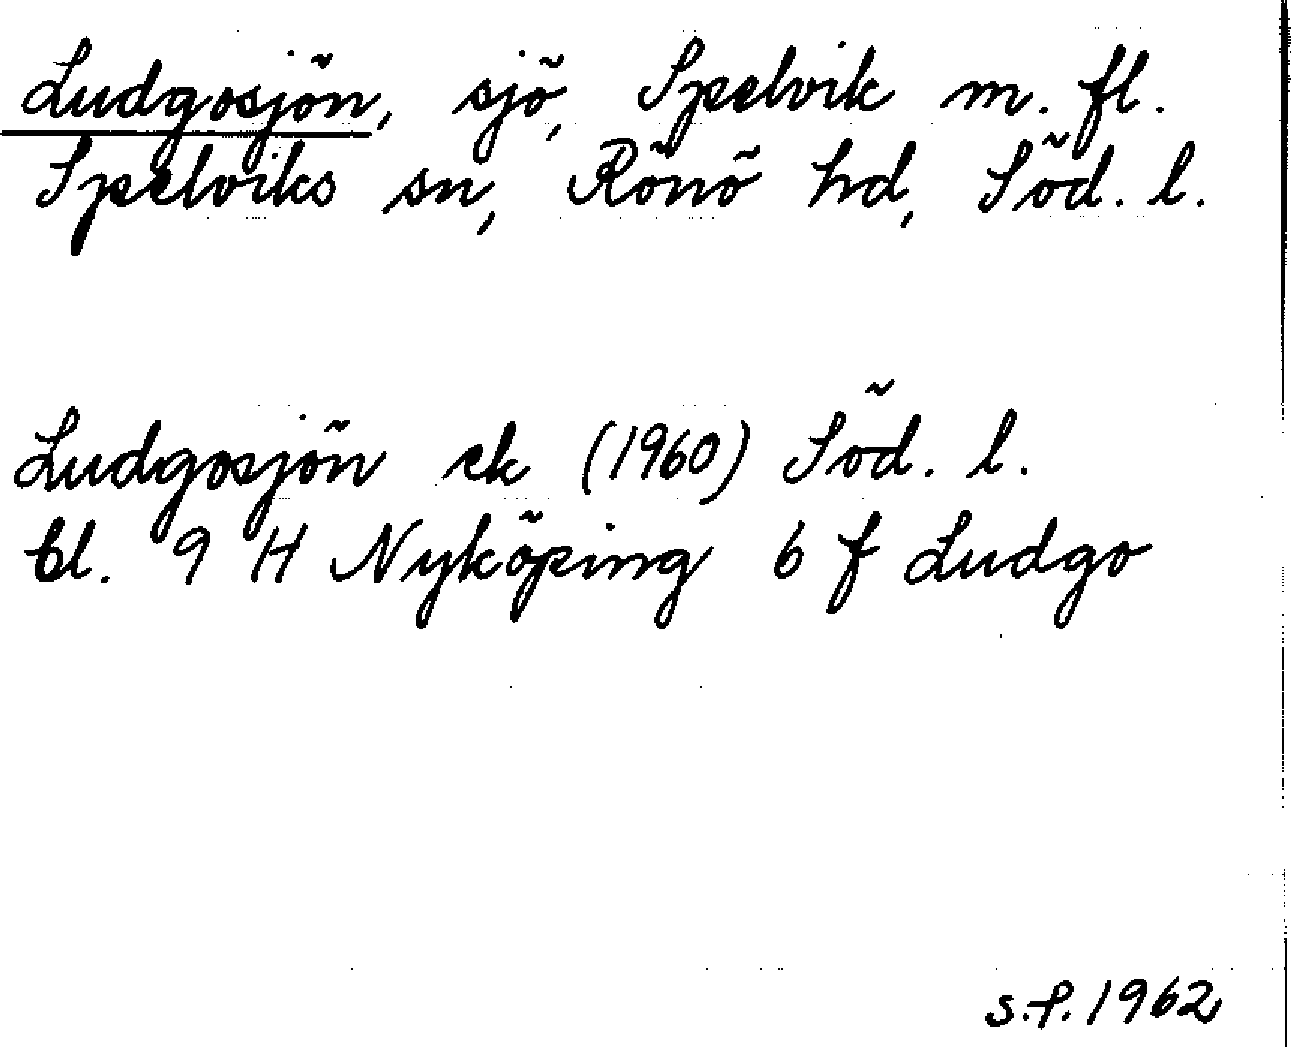 Ludgosjön, sjö, Spelvik m. fl.
Spelviks sn, Rönö hd, Söd. l.
Ludgosjön ek (1960) Söd. l.
bl. 9 H Nyköping 6 f Ludgo
s.f. 1962